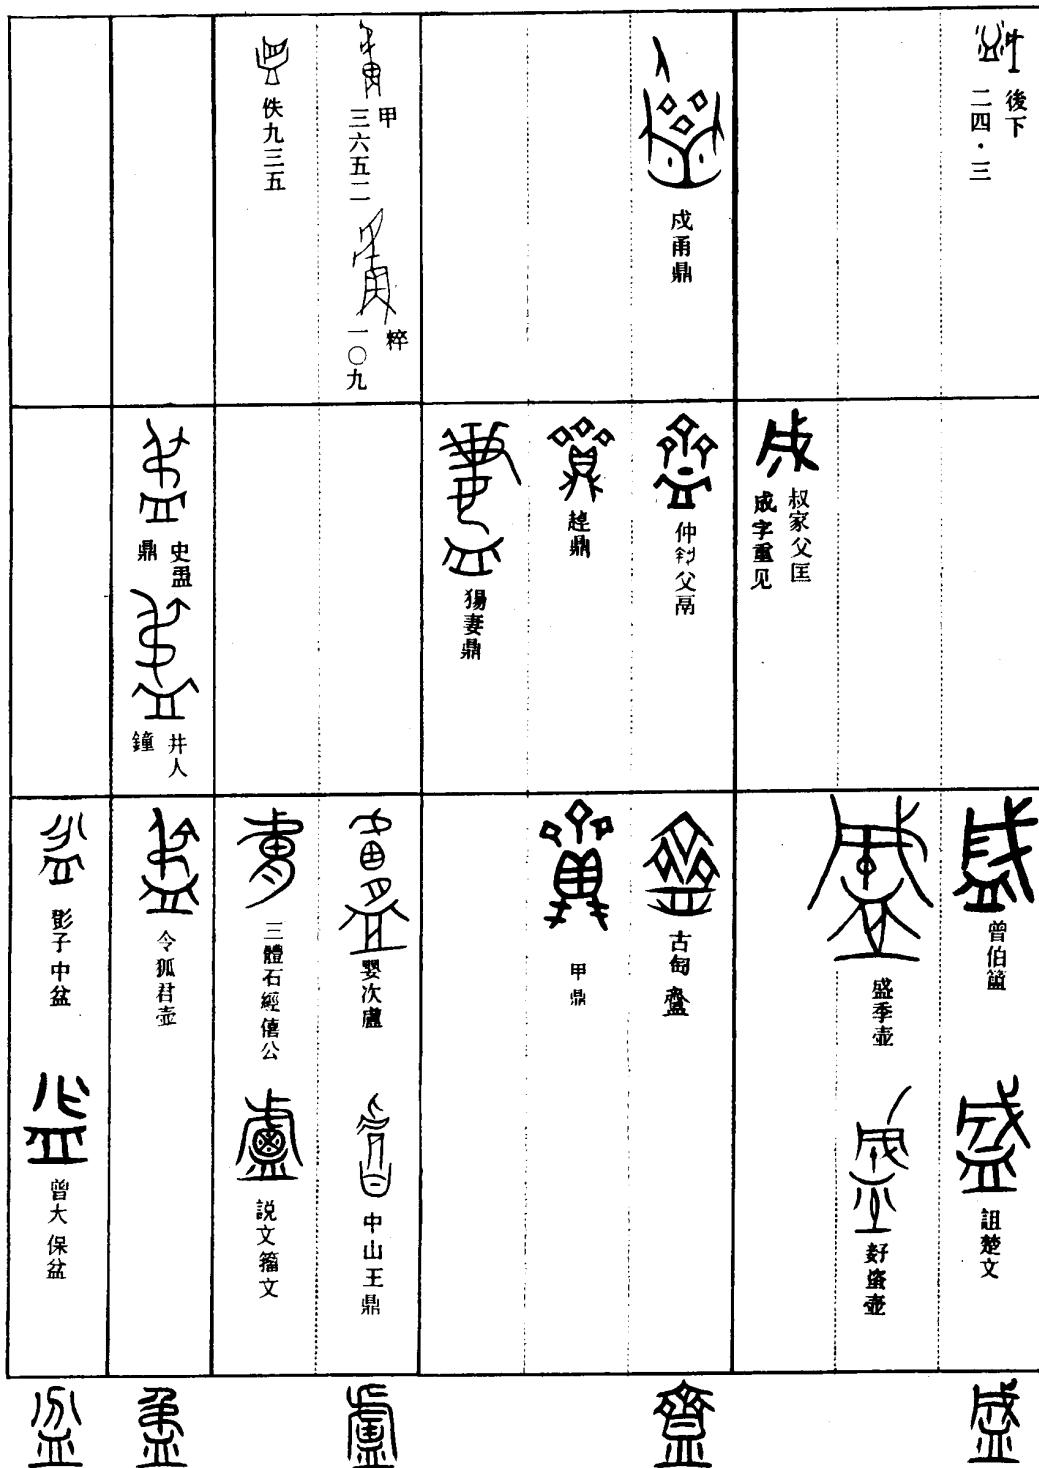 後下
二四·三
戍甬鼎
甲
三六五二
粹
一〇九
佚九三五
叔家父匡
成字重见
仲父鬲
趞鼎
妻鼎
史盄
鼎
井人
鐘
曾伯簠
詛楚文
盛季壺
蚉壺
古匋 齍
甲鼎
嬰次盧
中山王鼎
三體石經僖公
説文籀文
令狐君壺
子中盆
曾大保盆
盛
齍
盧
盄
盆